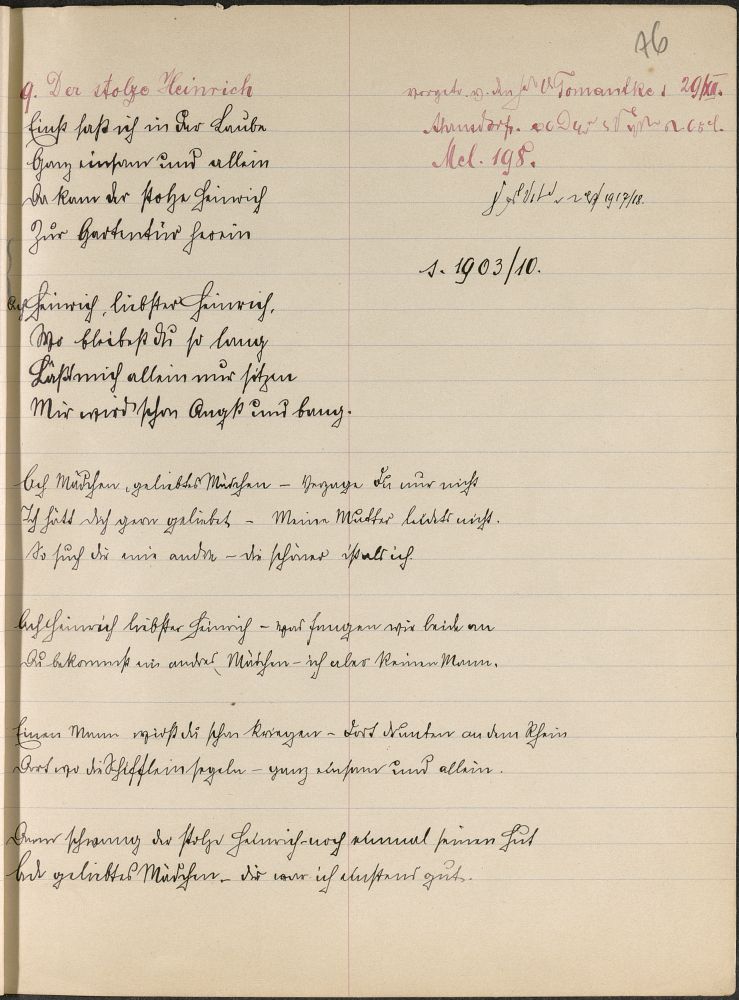 76
9. Der stolze Heinrich
vorgetr. v. Tomandke 29/XII.
Mel. 198.
1917/18.
s. 1903/10.
Einst saß ich in der Laube
Ganz einsam und allein
Da kam der stolze Heinrich
Zur Gartentür herein
Ach Heinrich, liebster Heinrich,
Wo bleibest du so lang
Läßt mich allein nur sitzen
Mir wird schon Angst und bang.
Ach Mädchen, geliebtes Mädchen – Verzage Du nur nicht
Ich hätt dich gern geliebet – Meine Mutter leidets nicht.
So such dir eine andre – die schöner ist als ich.
Ach Heinrich liebster Heinrich – was fangen wir beide an
Du bekommst ein andres Mädchen – ich aber keinen Mann.
Einen Mann wirst du schon kriegen – Dort drunten an dem Rhein
Dort wo die Schifflein segeln – ganz einsam und allein.
Dann schwang der stolze Heinrich noch einmal seinen Hut
Ade geliebtes Mädchen – dir war ich einstens gut.